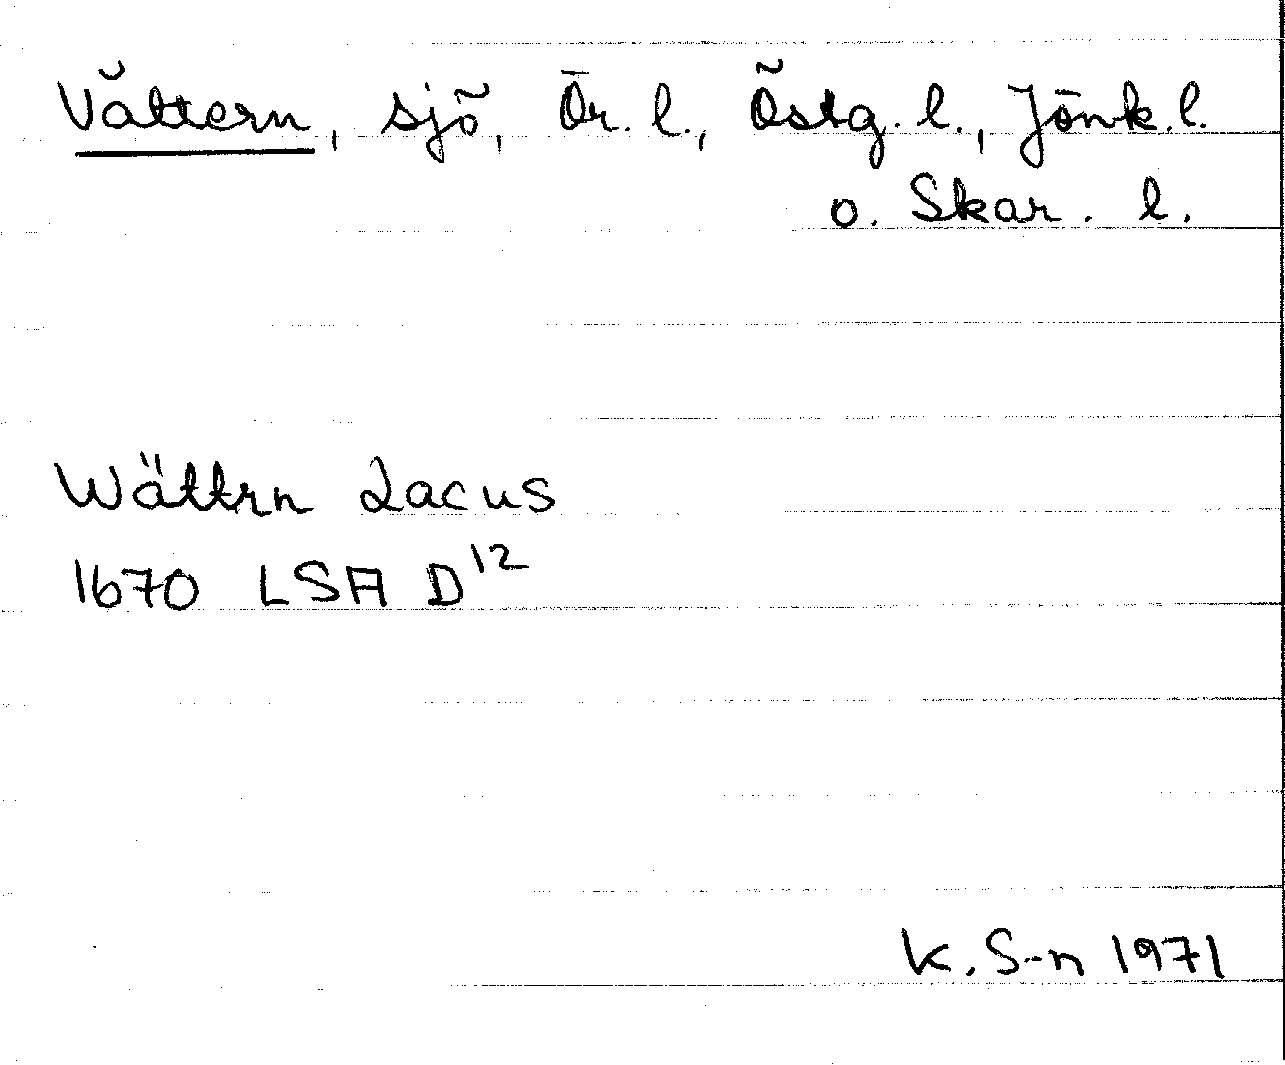 Vättern, sjö, Ör. l., Östg. l., Jönk. l.
o. Skar. l.
Wättrn Lacus
1670 LSA D¹²
K. S-n 1971